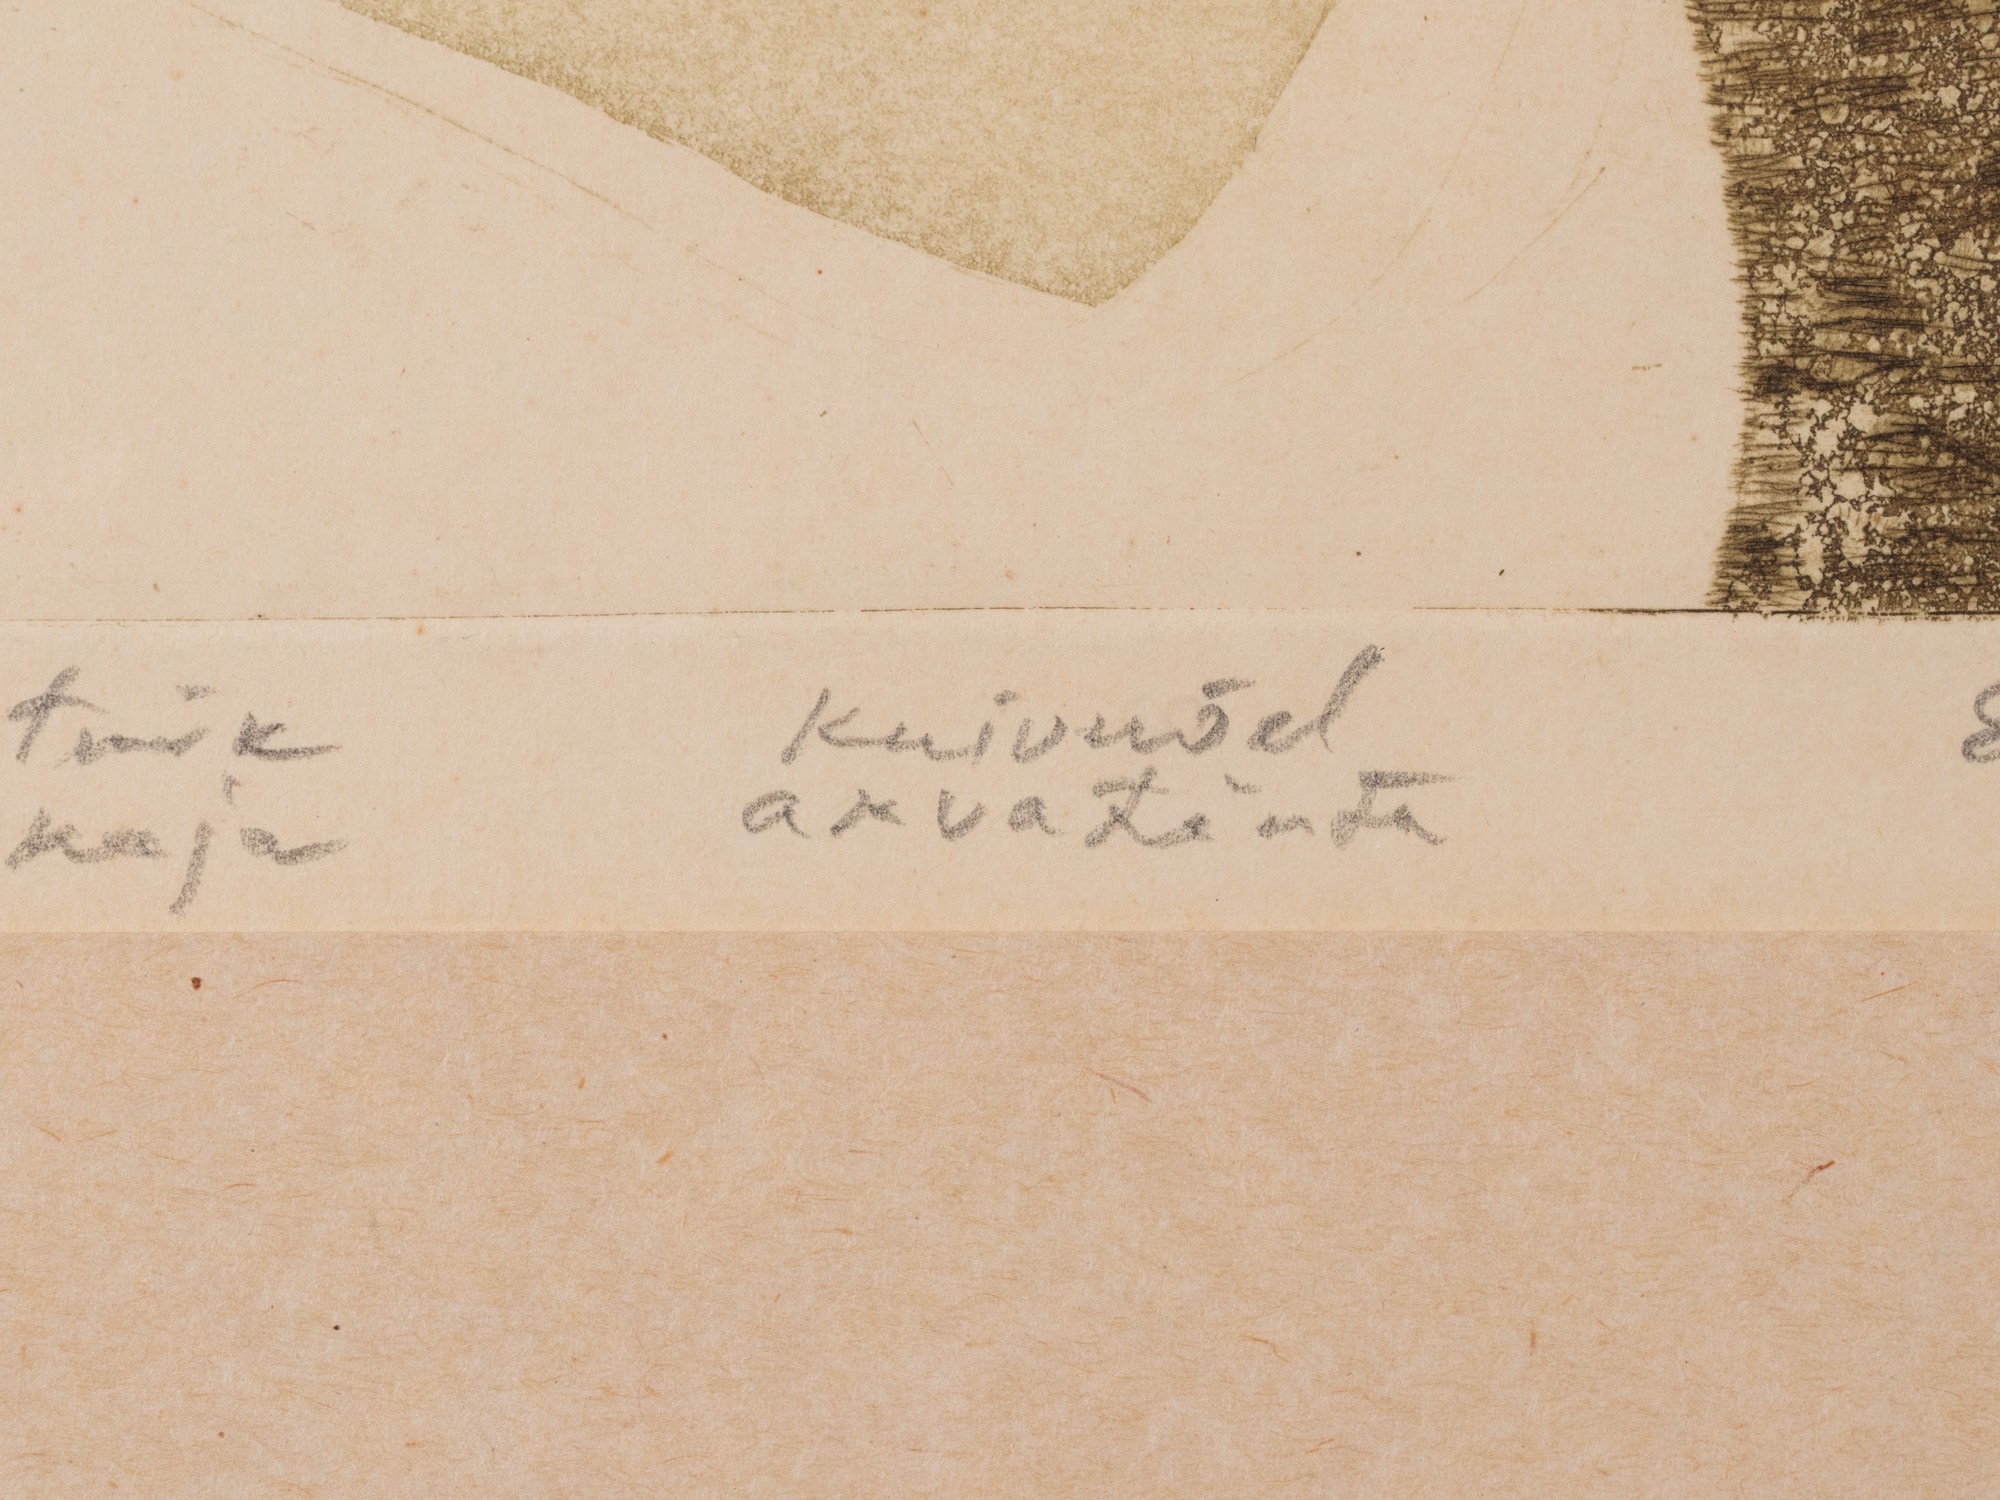 trük
kuivnõel
akvatinta